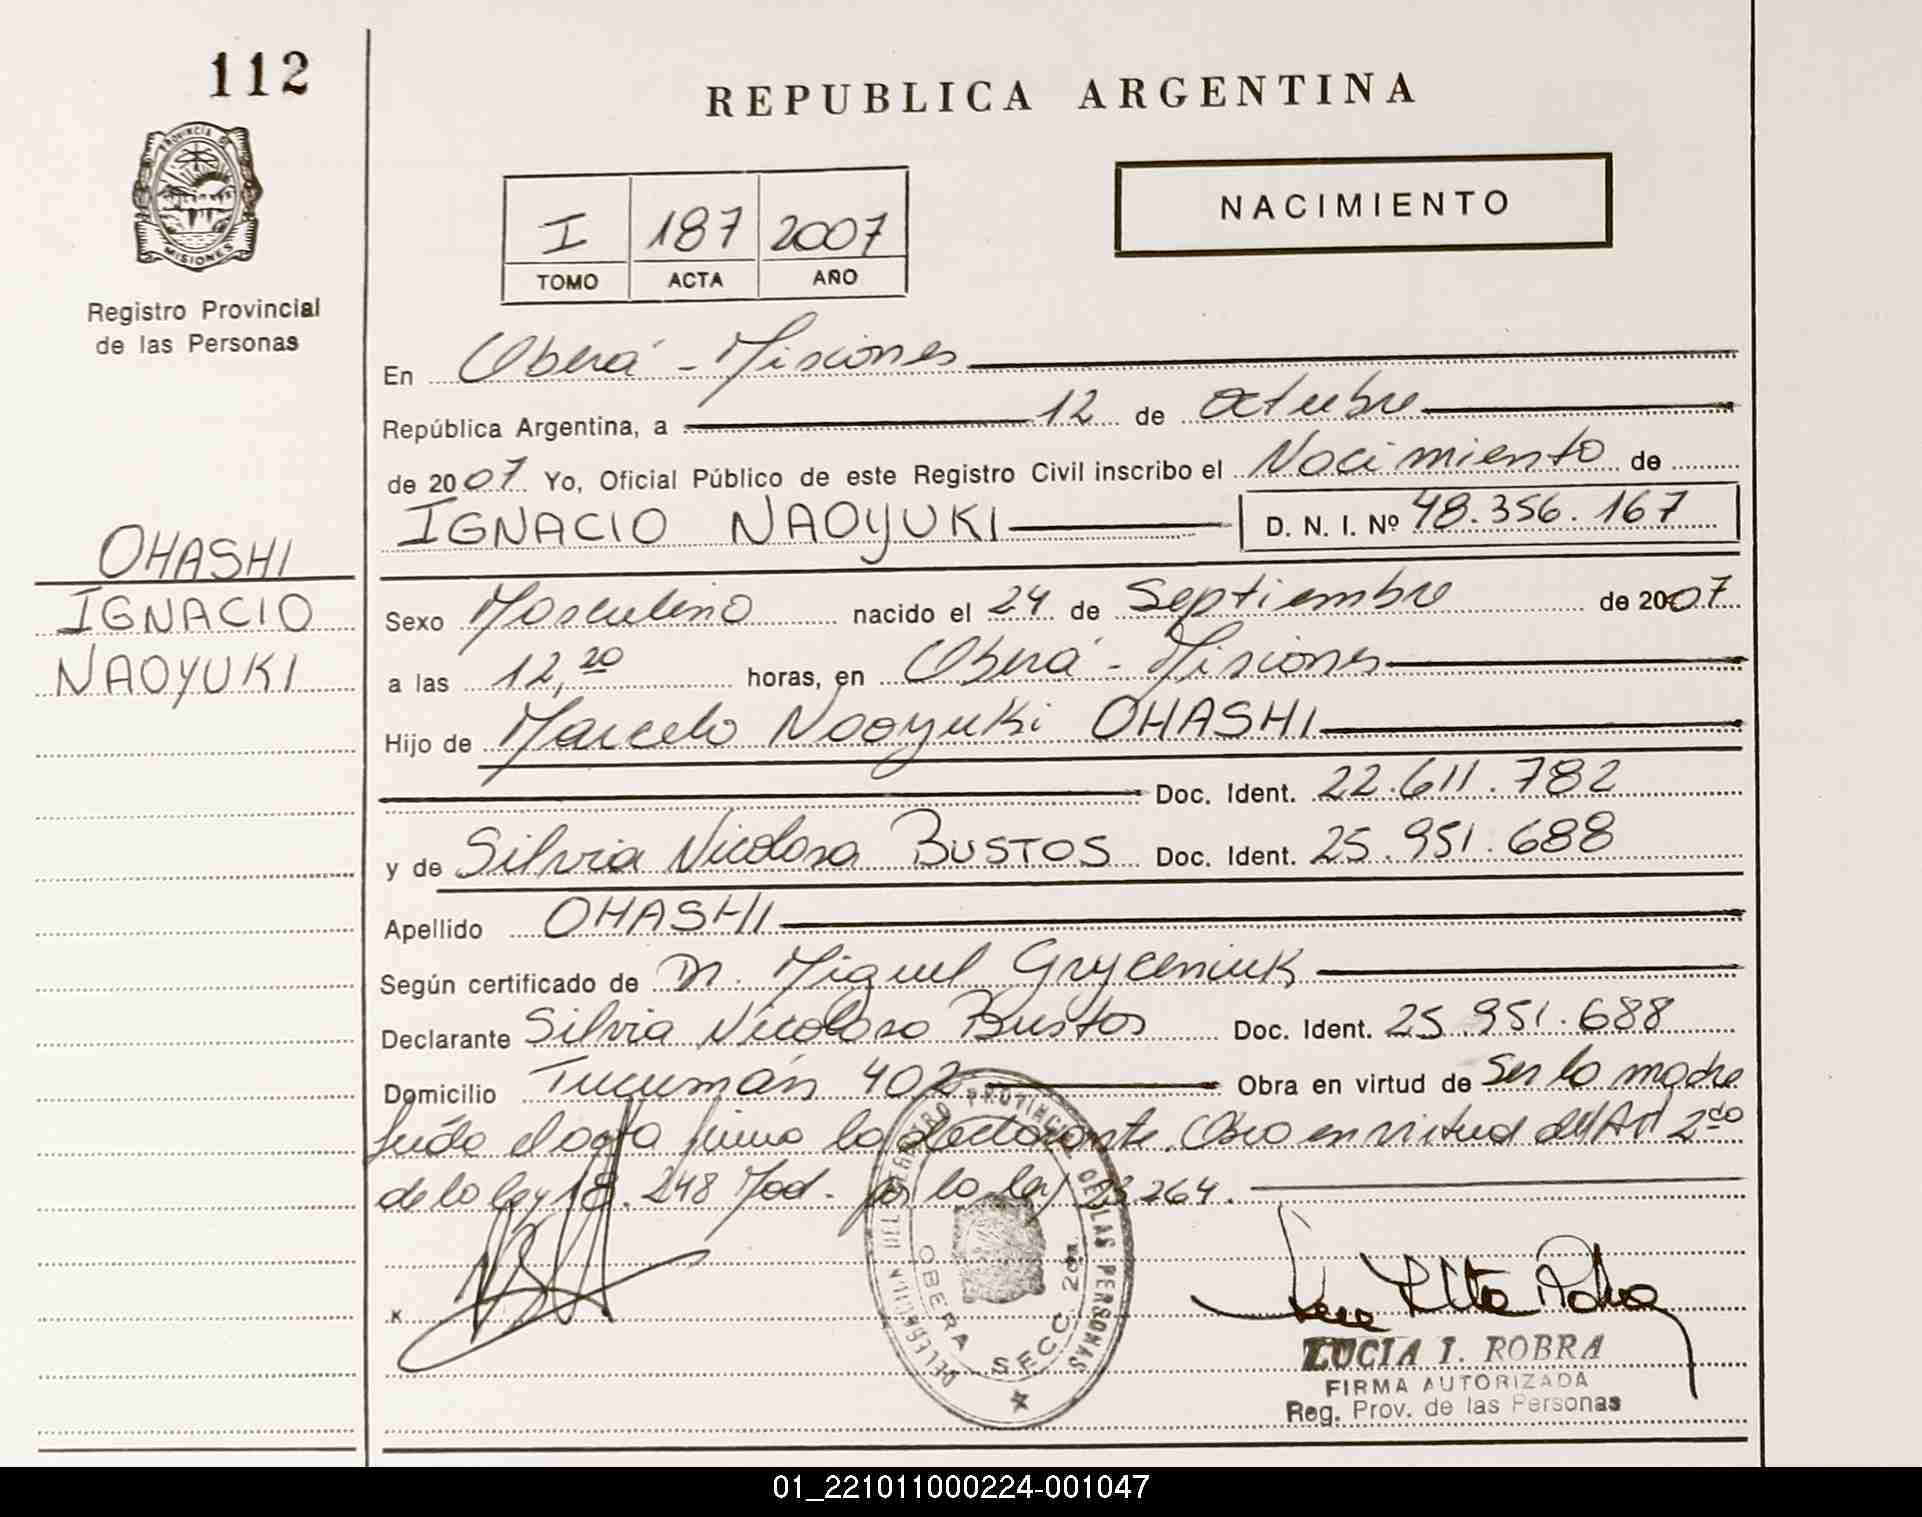 112
REPUBLICA ARGENTINA
PROVINCIA DE
MISIONES
Registro Provincial
de las Personas
I 187 2007
TOMO ACTA AÑO
NACIMIENTO
En Oberá - Misiones
República Argentina, a 12 de octubre
de 2007 Yo, Oficial Público de este Registro Civil inscribo el Nacimiento de
IGNACIO NAOYUKI D. N. I. Nº 48.356.167
OHASHI
IGNACIO
NAOYUKI
Sexo Masculino nacido el 24 de Septiembre de 2007
a las 12,20 horas, en Oberá - Misiones
Hijo de Marcelo Naoyuki OHASHI
Doc. Ident. 22.611.782
y de Silvia Nicolasa BUSTOS Doc. Ident. 25.951.688
Apellido OHASHI
Según certificado de Dr. Miguel Gryceniuk
Declarante Silvia Nicolasa Bustos Doc. Ident. 25.951.688
Domicilio Tucumán 402 Obra en virtud de Ser la madre
leída el acta firma la declarante. Obro en virtud del Art 2do
de la ley 18.248 Mod. por la ley 23.264.
x
DELEGACION DEL REGISTRO PROVINCIAL DE LAS PERSONAS
OBERA SECC. 2da.
LUCIA I. ROBRA
FIRMA AUTORIZADA
Reg. Prov. de las Personas
01_221011000224-001047